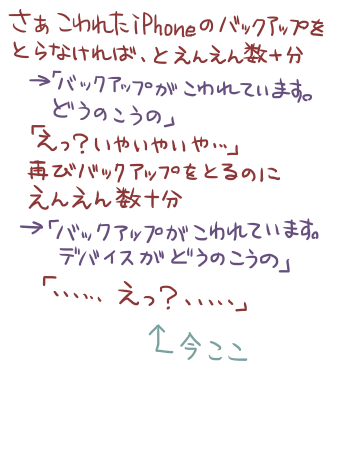 さぁ こわれたiPhoneのバックアップを
とらなければ、とえんえん数十分
→「バックアップがこわれています。
どうのこうの」
「えっ?いやいやいや…」
再びバックアップをとるのに
えんえん数十分
→「バックアップがこわれています。
デバイスがどうのこうの」
「…… えっ?……」
↑
今ここ